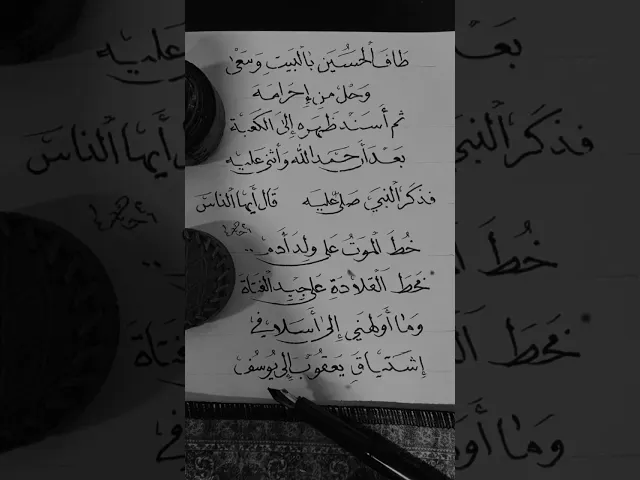 طَافَ الْحُسَين بالْبَيتِ وَسَعَىٰ
وَحَلَّ مِن إِحْرَامِه
ثم أَسنَد ظَهرَه إِلىٰ الكَعبَة
بَعْدَ أَن حَمَد الله وَأثنىٰ عَلَيه
فَذكرَ النَبيَ صَلىٰ عَليه قَالَ أَيها الْنَاسْ
خُطَ الْمَوتُ عَلىٰ وِلْدِ أَدَم ..
مَخَطَ الْقَلَادَةِ عَلىٰ جِيدِ الفَتَاة
وَمَا أَولَهَنيٰ إِلىٰ أَسلافي
إِشتيَاقِ يَعقُوبَ إِلىٰ يُوسُف